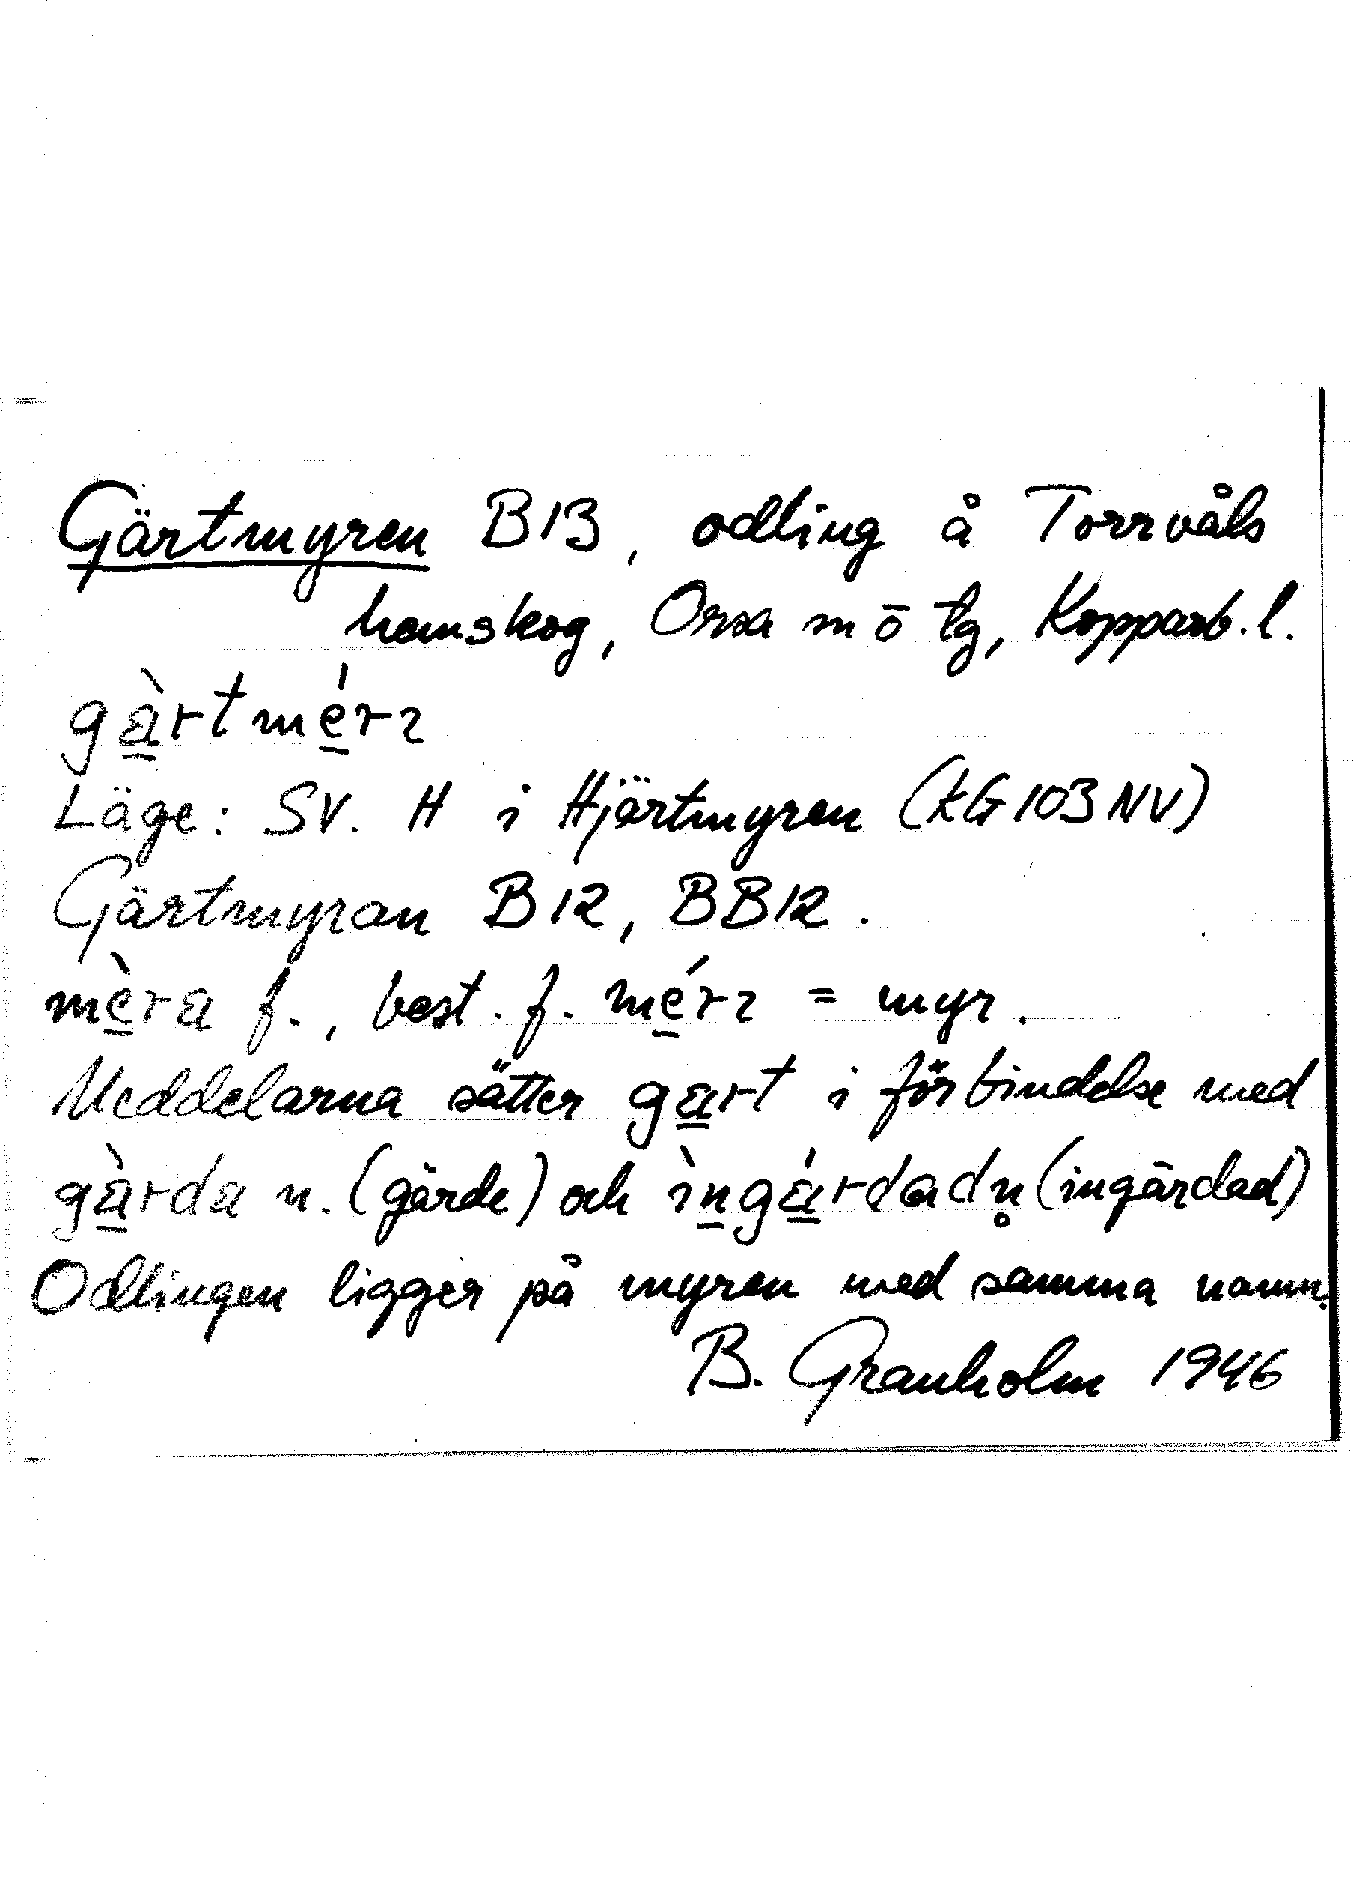 Gärtmyren B13, odling å Torrvåls
hemskog, Orsa m ō tg, Kopparb. l.
gàrtmérz
Läge: SV. H i Hjärtmyren (kG103NV)
Gärtmyran B12, BB12.
mèra f., best. f. mérz = myr.
Meddelarna sätter gart i förbindelse med
gàrda n. (gärde) och ìngárdadn̥ (ingärdad)
Odlingen ligger på myren med samma namn.
B. Granholm 1946